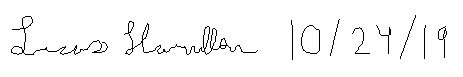 Lucas Hamilton 10/24/19